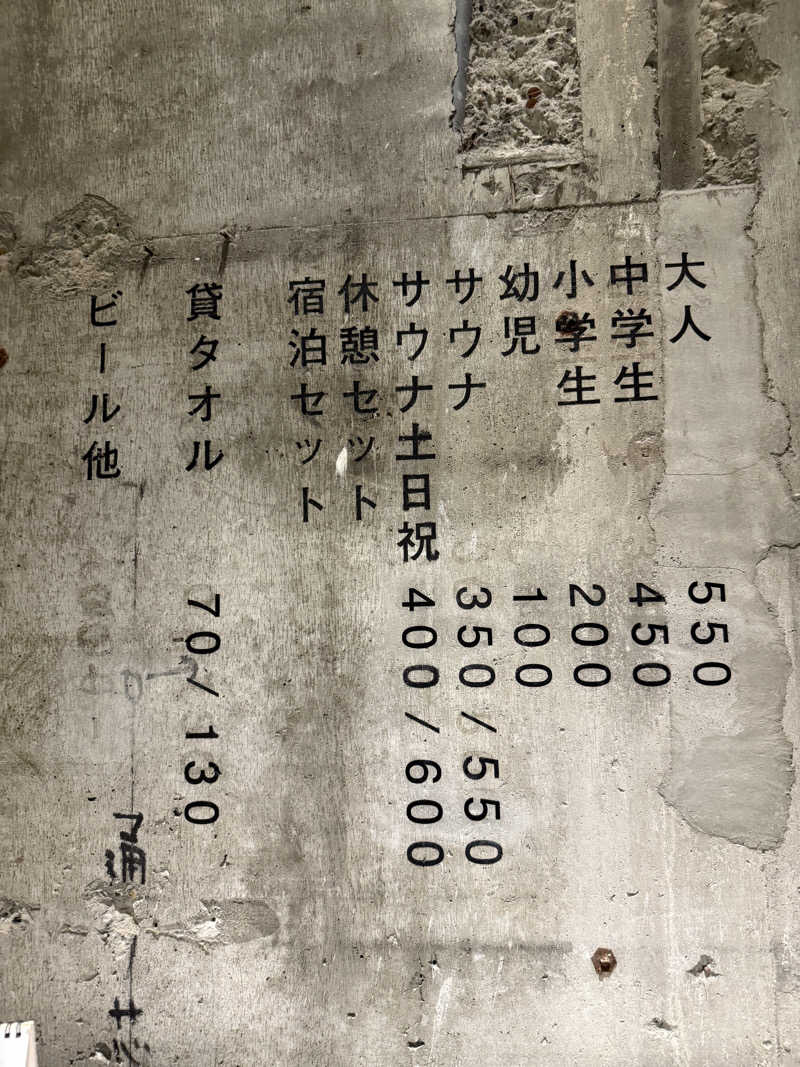 大人 550
中学生 450
小学生 200
幼児 100
サウナ 350/550
サウナ土日祝 400/600
休憩セット
宿泊セット
貸タオル 70/130
ビール他
通